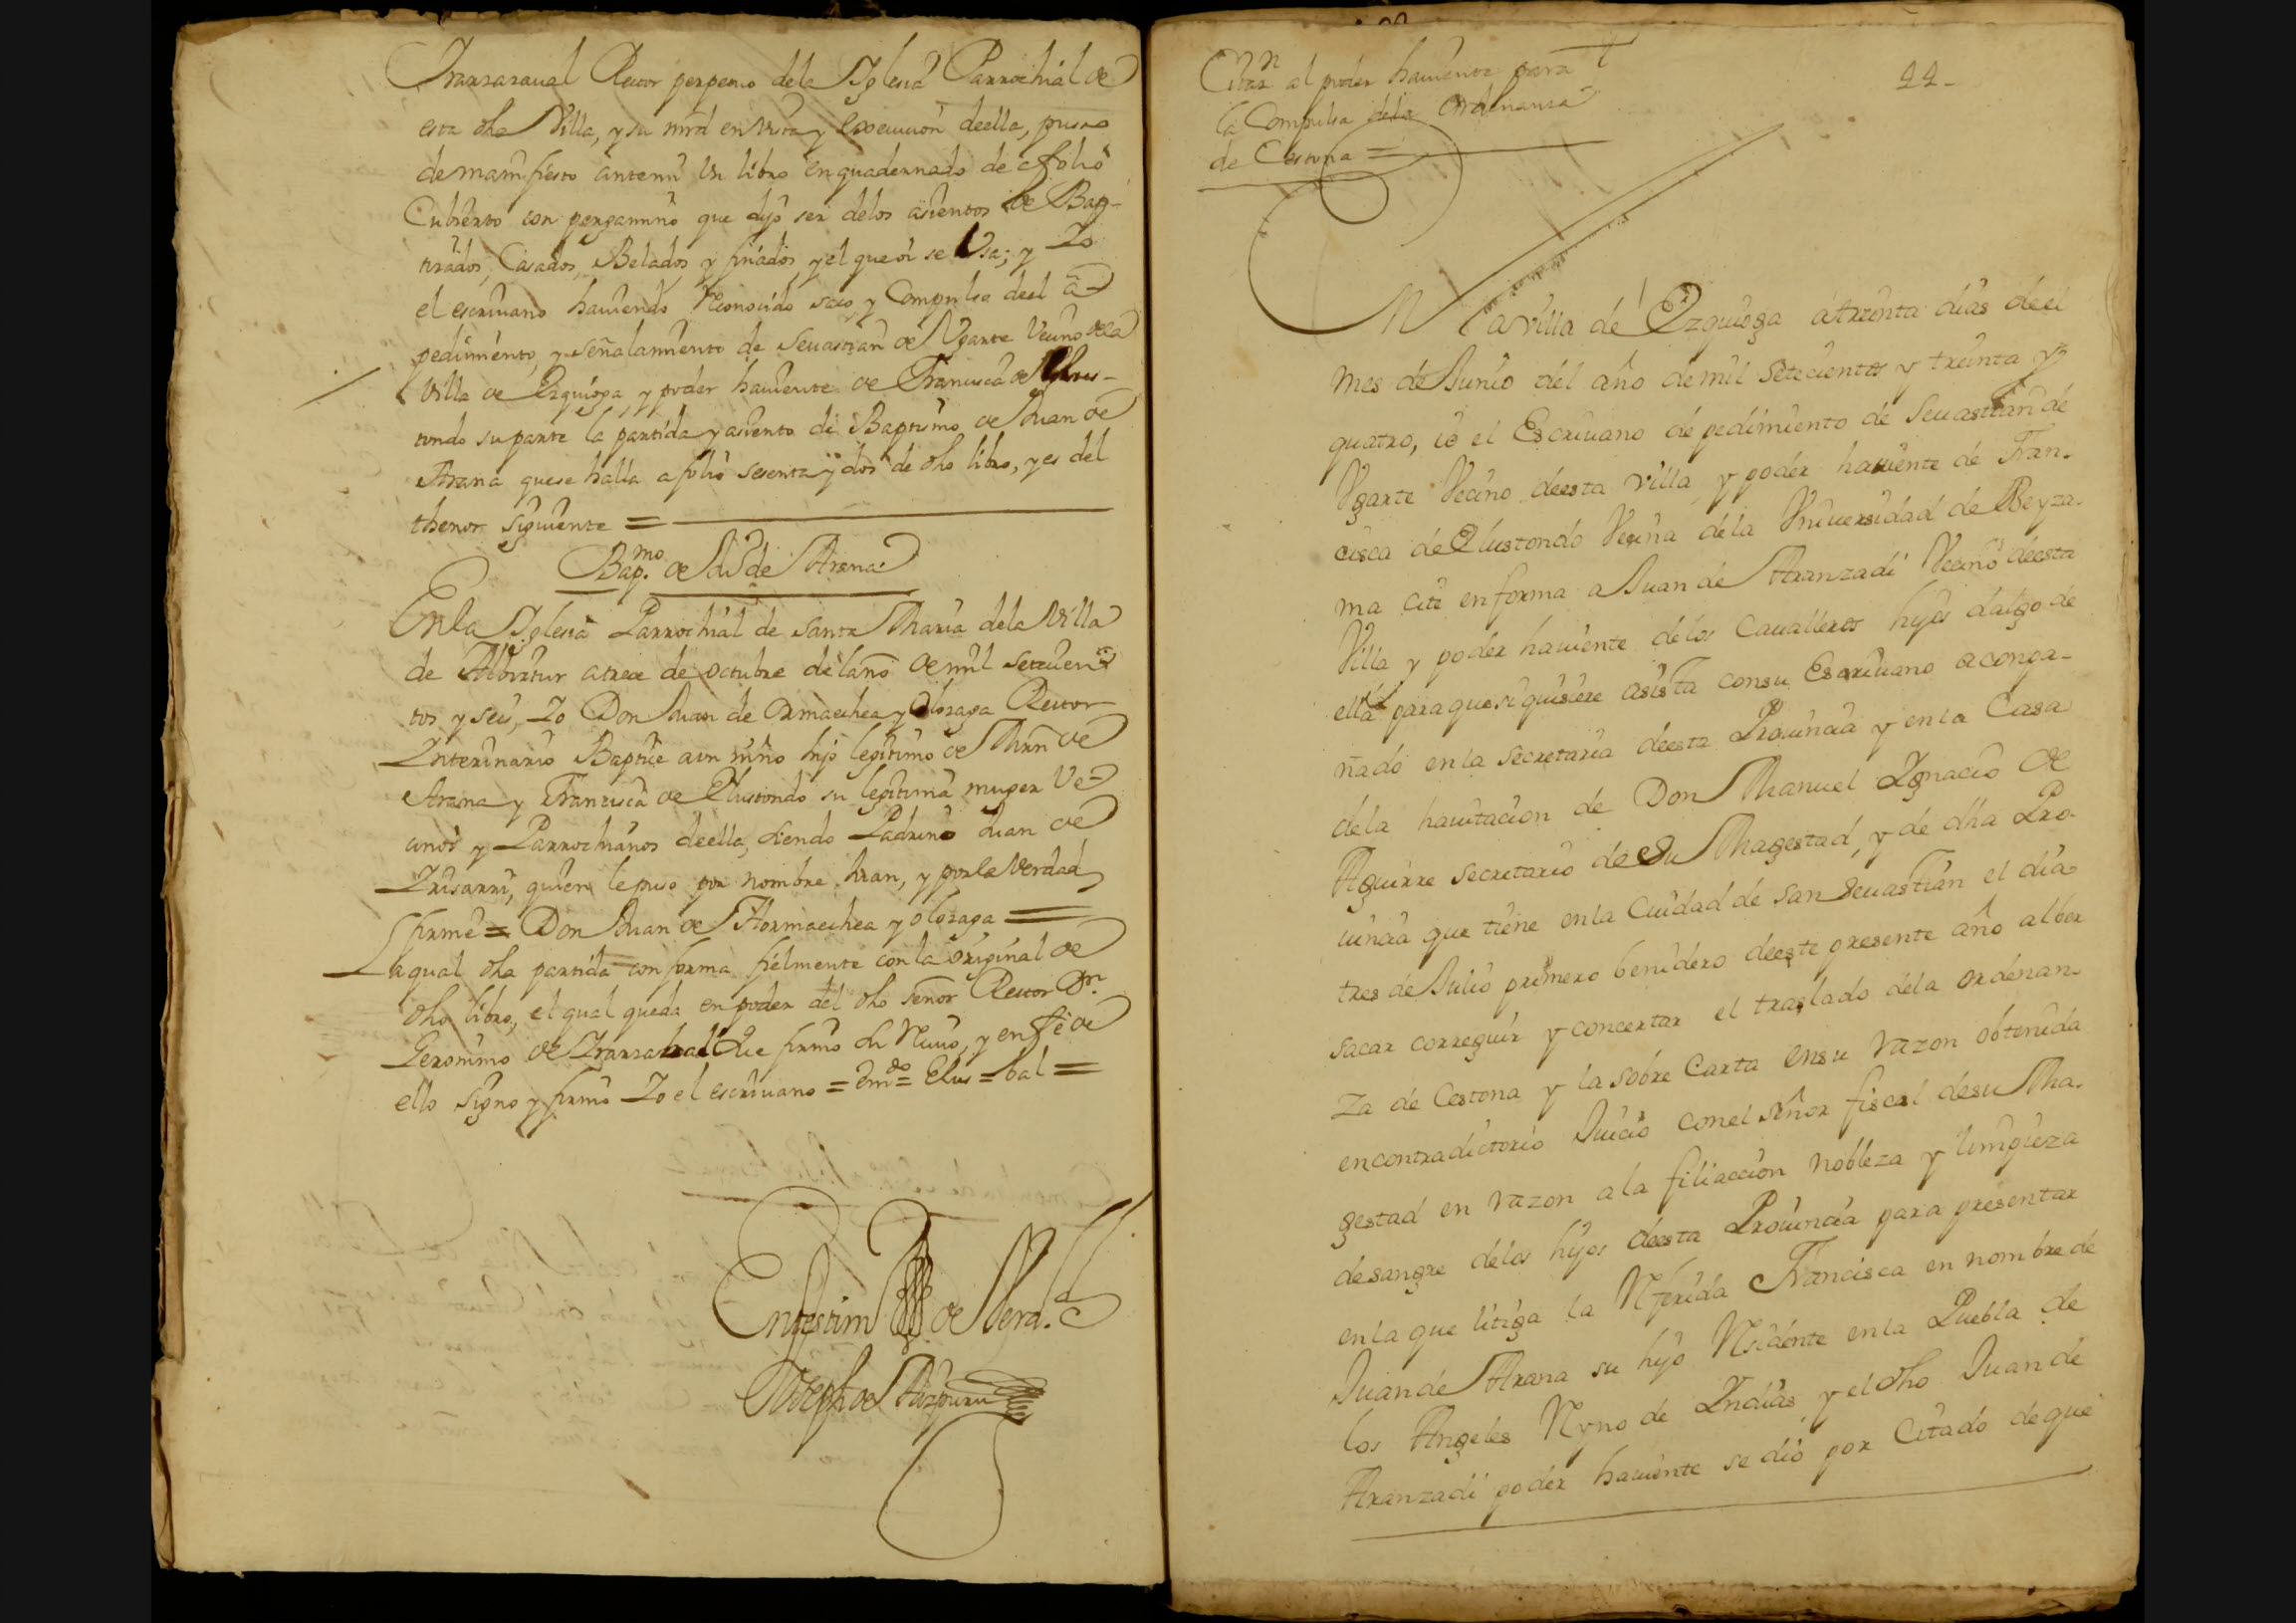 Iranzaraual Rector perpetuo dela Iglesia Parrochial de
esta dha Villa, y su mrd en vista y execuuion deella, puso
demanifiesto antemi Un libro enquadernado de afolio
Cubierto con pergamino que dijo ser delos asientos de Bap-
tizados, Casados, Belados y finados, y el que oi se Usa; y Yo
el escriuano hauiendo Reconocido saco y Compulso deel a
pedimiento, y señalamiento de Seuastian de Ugarte Vecino dela
Villa de Ezquioga, y poder hauiente de Francisca de Elus-
tondo su parte la partida y asiento de Baptismo de Juan de
Arana que se halla a folio sesenta y dos de dho libro, y es del
thenor siguiente =
Bap.mo de Ju de Arana
En la Iglesia Parrochial de Santa Maria dela Villa
de Albiztur a trece de octubre del año de mil setecien
tos y seis, Yo Don Juan de Ormaechea y Olozaga Rector
Interinario Baptice a un niño hijo legitimo de Mrn de
Arana y Francisca de Elustondo su legitima muger Ve-
cinos y Parrochianos deella, siendo Padrino Juan de
Irisarri, quien le puso por nombre Juan, y por la verdad
firme = Don Juan de Hormaechea y olozaga =
La qual dha partida conforma fielmente con la original de
dho libro, el qual queda en poder del dho señor Rector Dn
Geronimo de Iranzabal que firmo de Nuevo, y en fe de
ello signo y firmo Yo el escriuano = Emdo = Elus = bal =
En testim de Verd.d
Joseph de Aizpuru
Citazn al poder hauiente para
la Compulsa dela Ordenanza
de Cestona =
44-
En la villa de Ezquioga a treinta dias deel
mes de Junio del año de mil setecientos y treinta y
quatro, io el Escriuano de pedimiento de Seuastian de
Ugarte Vecino deesta villa y poder hauiente de Fran-
cisca de Elustondo Vecina dela Uniuersidad de Beyza-
ma cite en forma a Juan de Aranzadi Vecino deesta
Villa y poder hauiente delos Caualleros hijos dalgo de
ella para que si quisiere asista con su Escriuano acompa-
ñado en la secretaria deesta Prouincia y en la Casa
dela hauitacion de Don Manuel Ignacio de
Aguirre secretario de Su Magestad, y de dha Pro-
uincia que tiene en la Ciudad de San Seuastian el dia
tres de Julio primero benidero deeste presente año al ber
sacar corregir y concertar el traslado dela ordenan-
za de Cestona y la sobre Carta en su razon obtenida
en contradictorio Juicio con el señor fiscal de su Ma-
gestad en razon a la filiaccion nobleza y limpieza
de sangre delos hijos deesta Prouincia para presentar
en la que litiga la Referida Francisca en nombre de
Juan de Arana su hijo Residente en la Puebla de
los Angeles Reyno de Indias y el dho Juan de
Aranzadi poder hauiente se dio por Citado de que